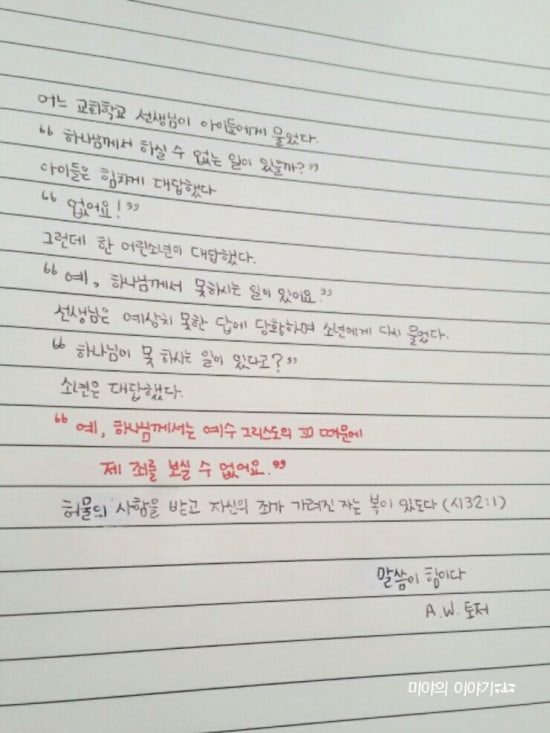 어느 교회학교 선생님이 아이들에게 물었다.
“ 하나님께서 하실 수 없는 일이 있을까?”
아이들은 힘차게 대답했다
“ 없어요!”
그런데 한 어린소년이 대답했다.
“ 예, 하나님께서 못하시는 일이 있어요.”
선생님은 예상치 못한 답에 당황하며 소년에게 다시 물었다.
“ 하나님이 못 하시는 일이 있다고?”
소년은 대답했다.
“ 예, 하나님께서는 예수 그리스도의 피 때문에
제 죄를 보실 수 없어요.”
허물의 사함을 받고 자신의 죄가 가려진 자는 복이 있도다 (시32:1)
말씀이 힘이다
A.W. 토저
미야의 이야기